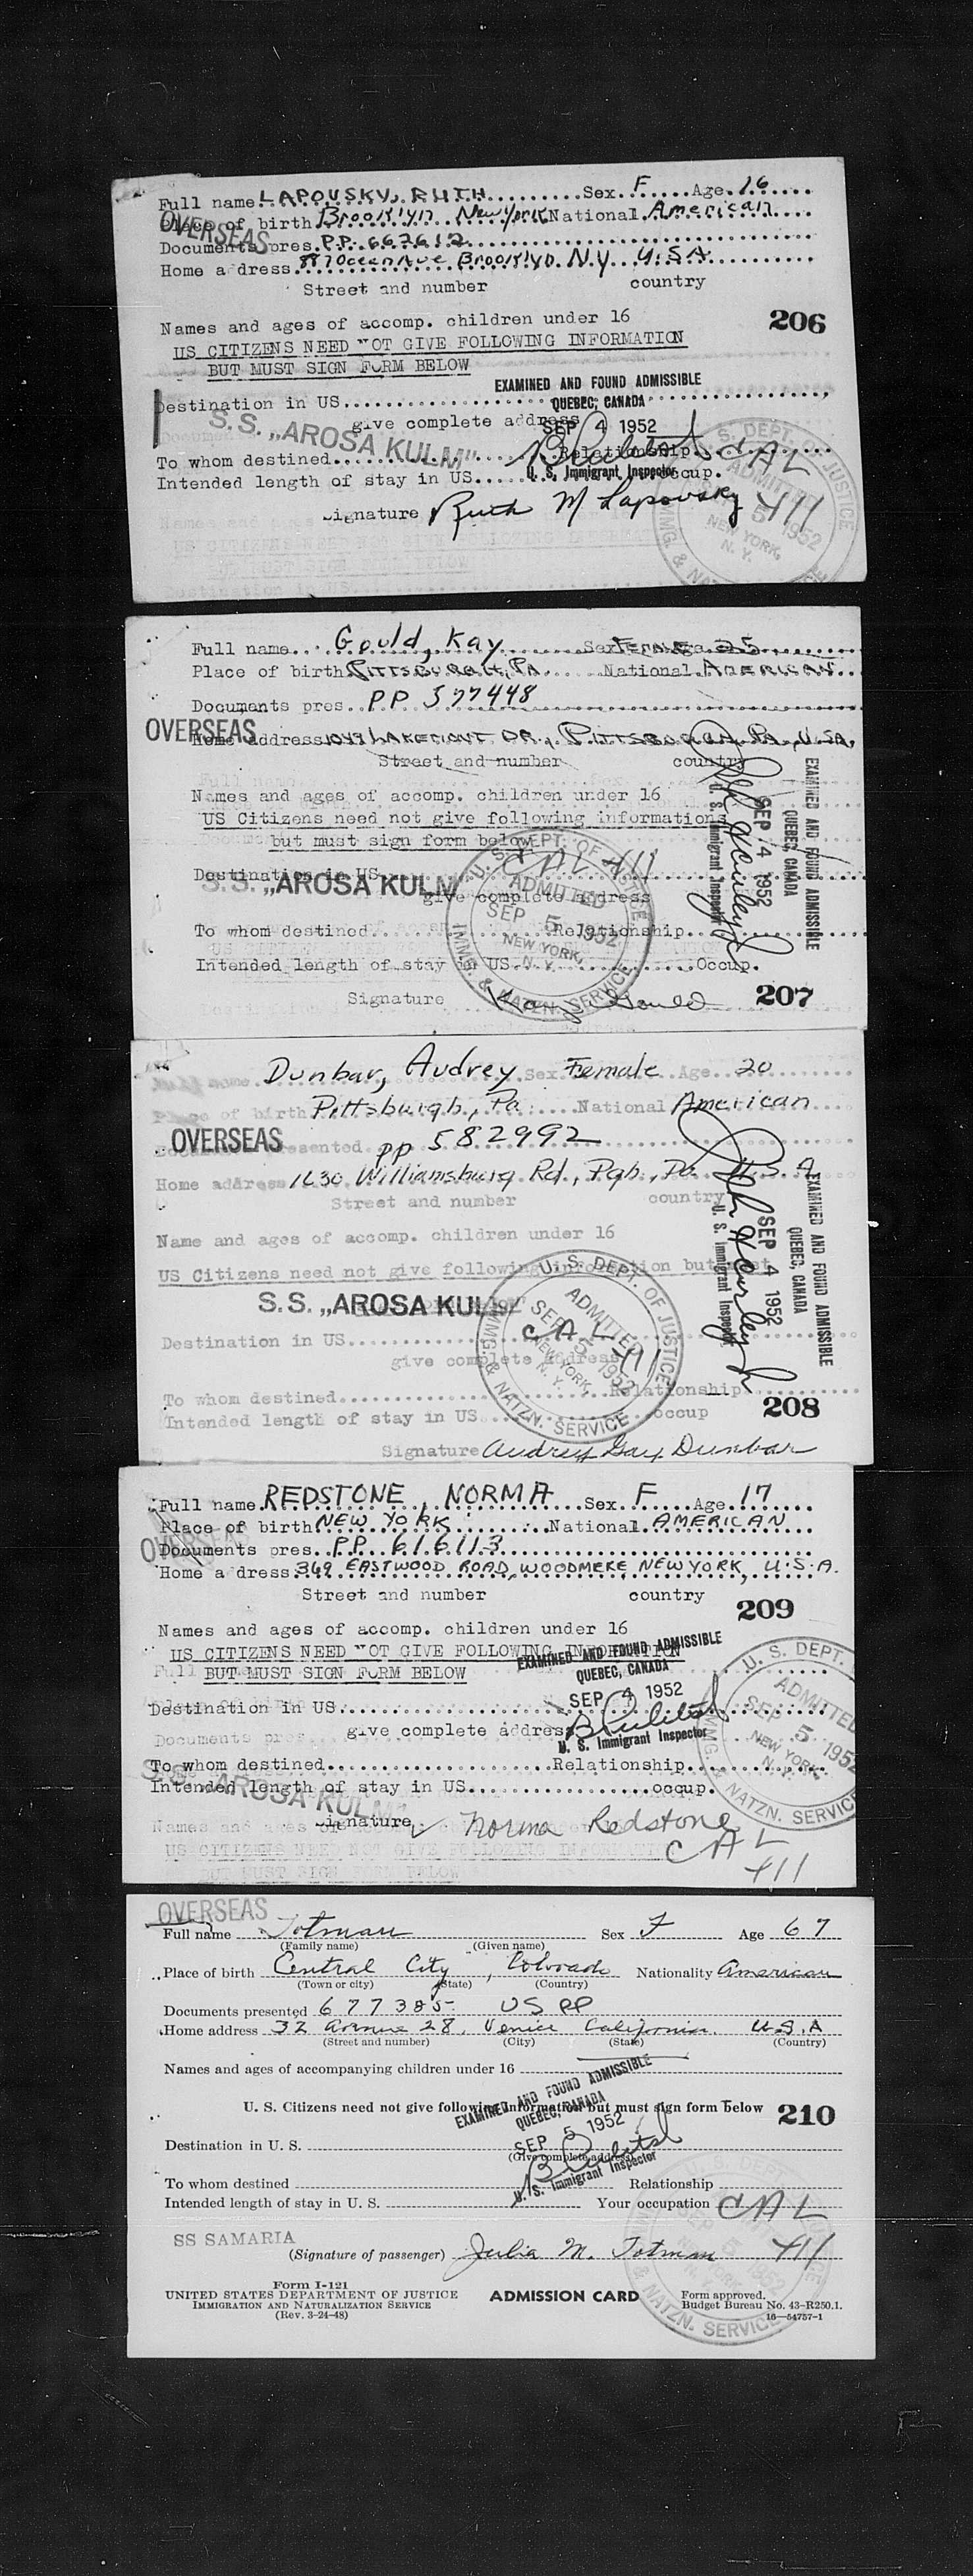 Full name LAPOVSKY, RUTH Sex F Age 16
OVERSEAS
Place of birth Brooklyn New York National American
Documents pres. P.P. 667612
Home address 887 Ocean Ave Brooklyn N.Y. U.S.A.
Street and number country
206
Names and ages of accomp. children under 16
US CITIZENS NEED NOT GIVE FOLLOWING INFORMATION
BUT MUST SIGN FORM BELOW
EXAMINED AND FOUND ADMISSIBLE
QUEBEC, CANADA
Destination in US
give complete address
SEP 4 1952
S.S. „AROSA KULM"
To whom destined Relationship
U. S. Immigrant Inspector
Intended length of stay in US Occup.
CAL
411
Signature Ruth M Lapovsky
U. S. DEPT. OF JUSTICE
ADMITTED
SEP 5 1952
NEW YORK, N. Y.
IMMG. & NATZN. SERVICE
Full name Gould, Kay Sex FEMALE Age 25
Place of birth PITTSBURGH, PA. National AMERICAN
Documents pres. PP 577448
OVERSEAS
Home address LAKEMONT DR., PITTSBURGH PA., U.S.A.
Street and number country
Names and ages of accomp. children under 16
US Citizens need not give following informations
but must sign form below
EXAMINED AND FOUND ADMISSIBLE
QUEBEC, CANADA
SEP 4 1952
U. S. Immigrant Inspector
CAL 411
Destination in US
S.S. „AROSA KULM
give complete address
U. S. DEPT. OF JUSTICE
ADMITTED
SEP 5 1952
NEW YORK, N. Y.
IMMG. & NATZN. SERVICE
To whom destined Relationship
Intended length of stay in US Occup.
Signature Kay Gould
207
Dunbar, Audrey Sex Female Age 20
Place of birth Pittsburgh, Pa National American
OVERSEAS
presented pp 582992
Home address 1630 Williamsburg Rd, Pgh., Pa. U.S.A.
Street and number country
Name and ages of accomp. children under 16
US Citizens need not give following information but must
EXAMINED AND FOUND ADMISSIBLE
QUEBEC, CANADA
SEP 4 1952
U. S. Immigrant Inspector
S.S. „AROSA KULM
Destination in US
give complete address
CAL
411
U. S. DEPT. OF JUSTICE
ADMITTED
SEP 5 1952
NEW YORK, N. Y.
IMMG. & NATZN. SERVICE
To whom destined Relationship
Intended length of stay in US occup
208
Signature Audrey Gay Dunbar
Full name REDSTONE, NORMA Sex F Age 17
Place of birth NEW YORK National AMERICAN
OVERSEAS
Documents pres. P.P. 616113
Home address 369 EASTWOOD ROAD, WOODMERE, NEW YORK, U.S.A.
Street and number country
209
Names and ages of accomp. children under 16
US CITIZENS NEED NOT GIVE FOLLOWING INFORMATION
BUT MUST SIGN FORM BELOW
EXAMINED AND FOUND ADMISSIBLE
QUEBEC, CANADA
SEP 4 1952
Destination in US
give complete address
U. S. Immigrant Inspector
U. S. DEPT.
ADMITTED
SEP 5 1952
NEW YORK, N. Y.
IMMG. & NATZN. SERVICE
To whom destined Relationship
Intended length of stay in US occup.
S.S. „AROSA KULM"
Signature Norma Redstone
CAL
411
OVERSEAS
Full name Totman Sex F Age 67
(Family name) (Given name)
Place of birth Central City, Colorado Nationality American
(Town or city) (State) (Country)
Documents presented 677385 US PP
Home address 32 Avenue 28, Venice California. U.S.A
(Street and number) (City) (State) (Country)
Names and ages of accompanying children under 16
EXAMINED AND FOUND ADMISSIBLE
QUEBEC, CANADA
U. S. Citizens need not give following information but must sign form below
210
SEP 5 1952
Destination in U. S.
(Give complete address)
U. S. Immigrant Inspector
To whom destined Relationship
Intended length of stay in U. S. Your occupation CAL
SS SAMARIA
(Signature of passenger) Julia M. Totman 411
Form I-121
UNITED STATES DEPARTMENT OF JUSTICE
IMMIGRATION AND NATURALIZATION SERVICE
(Rev. 3-24-48)
ADMISSION CARD
Form approved.
Budget Bureau No. 43-R250.1.
16—54757-1
NATZN. SERVICE